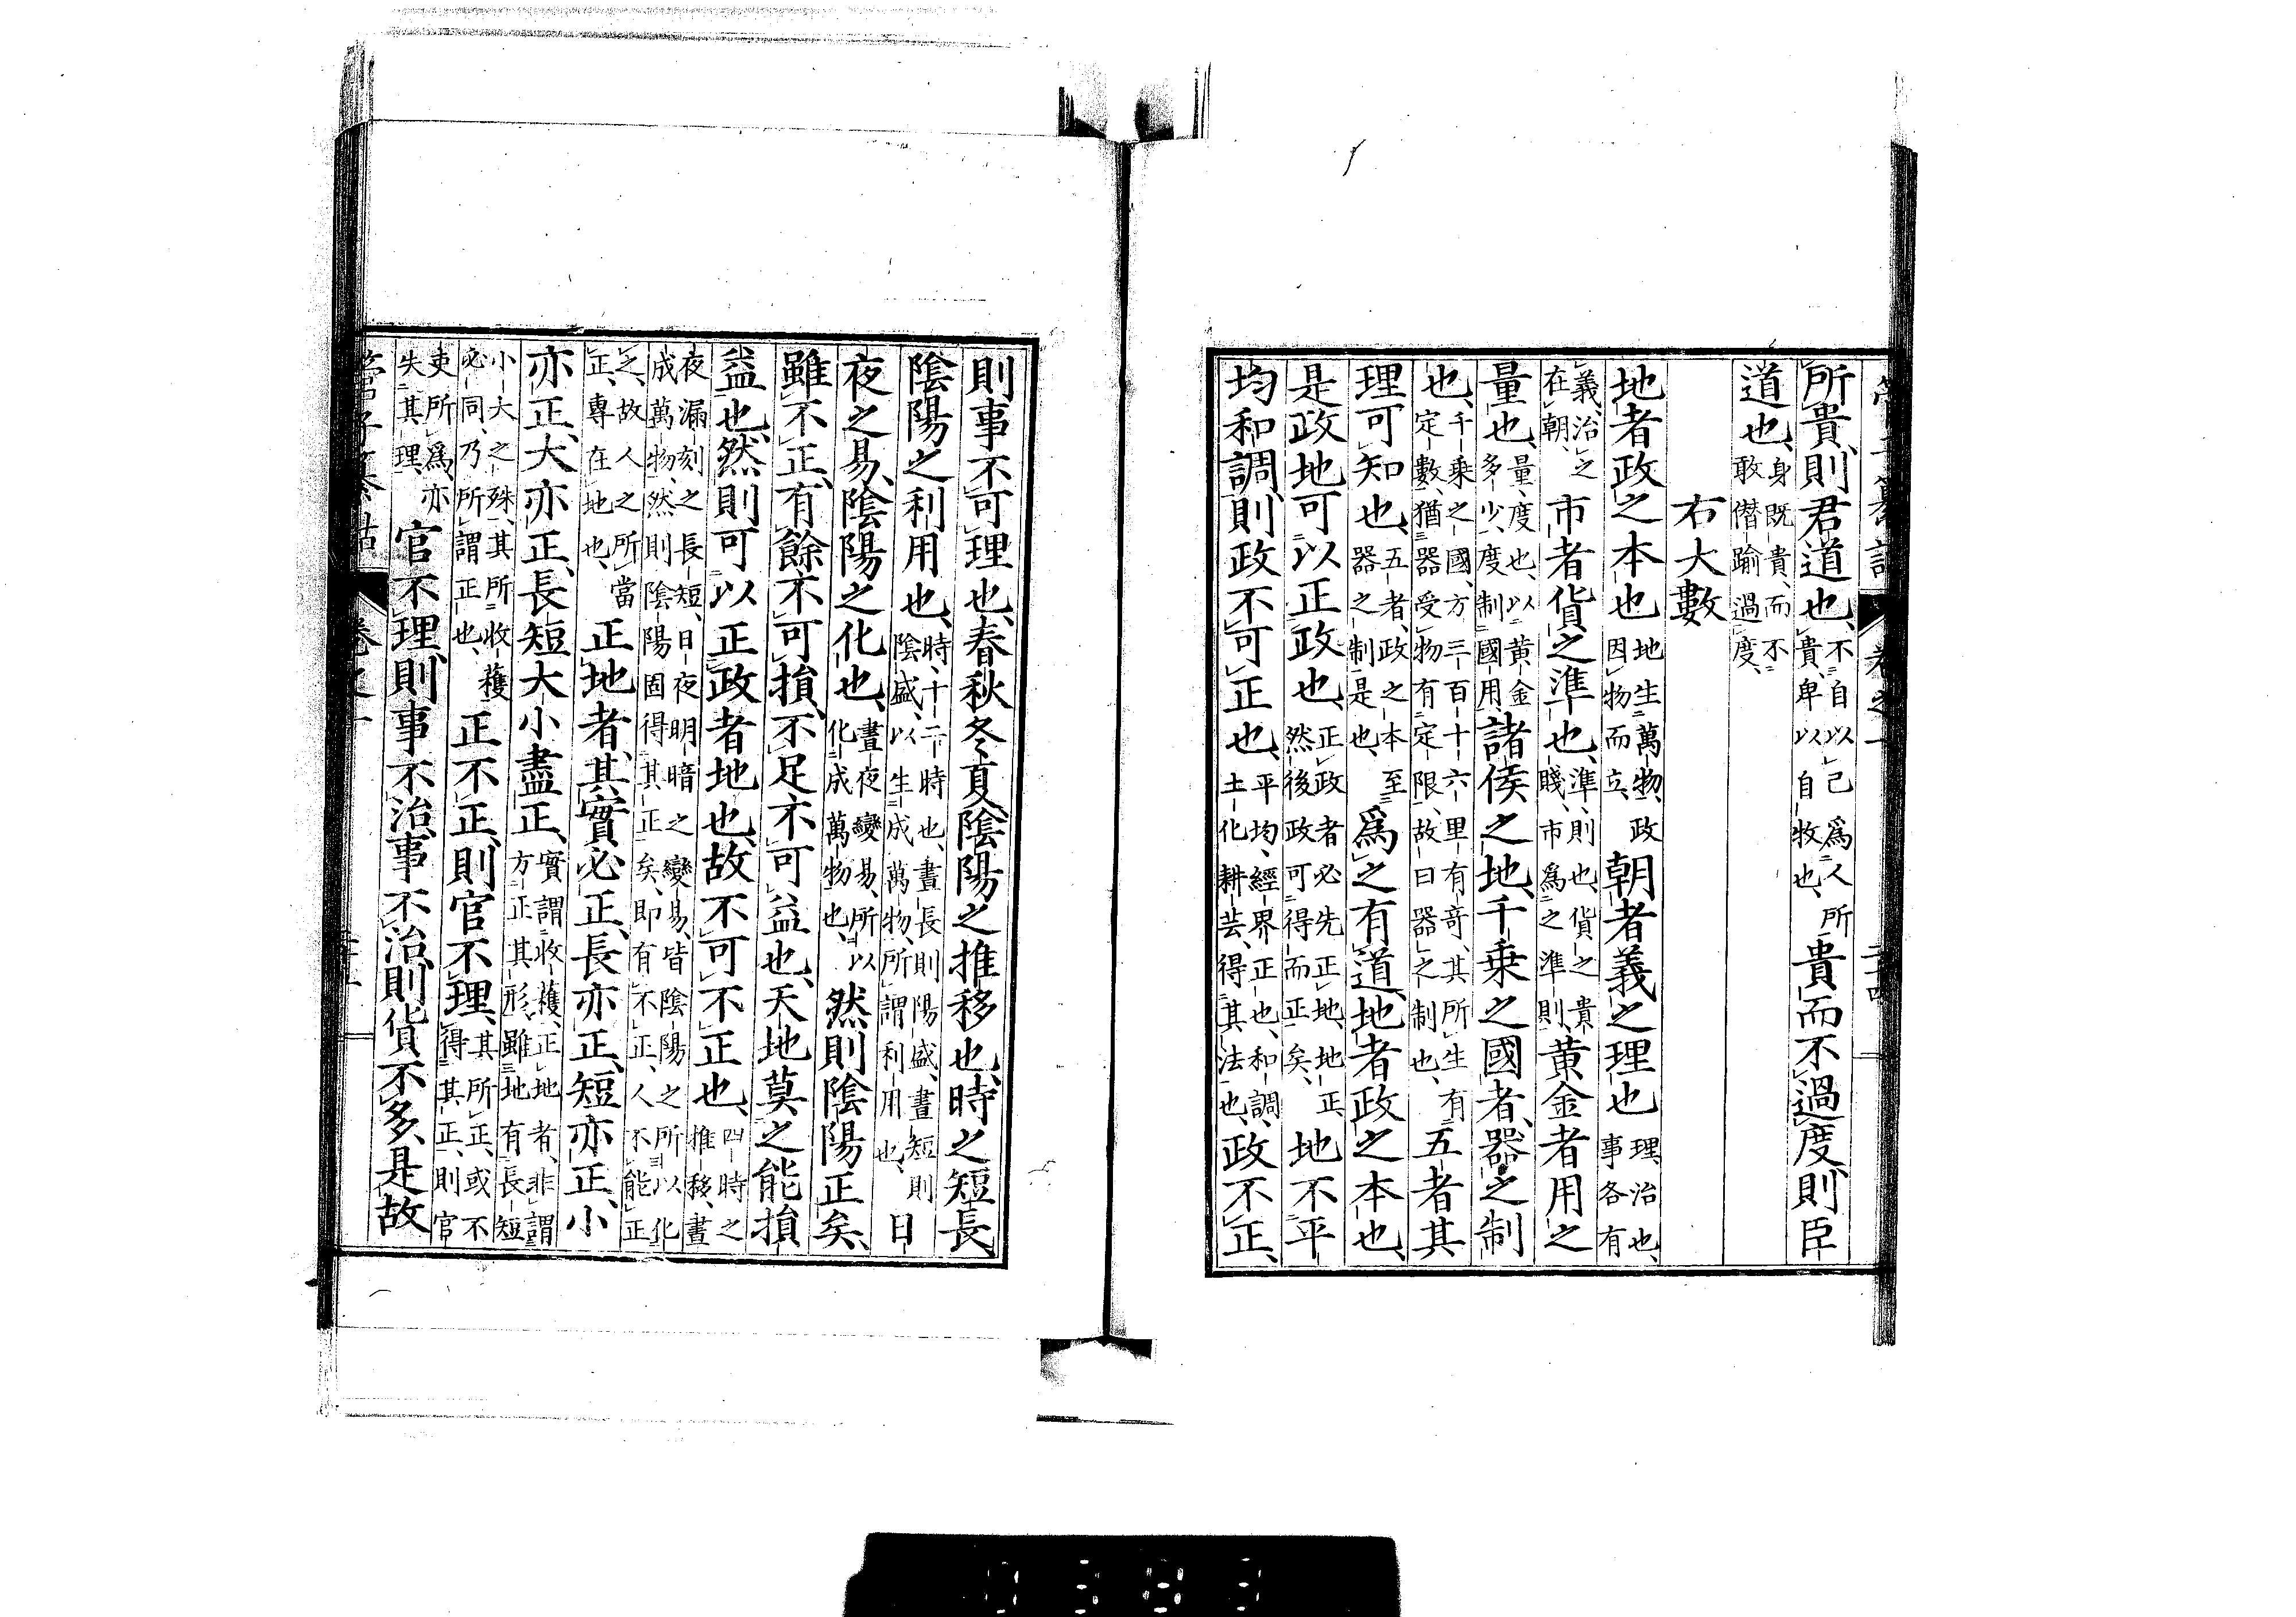 管子纂詁 卷之一 二十四
所貴、則君道也、不自以己爲人所貴、卑以自牧也、貴而不過度、則臣
道也、身既貴、而不敢僭踰過度、
右大數
地者政之本也地生萬物、政因物而立、朝者義之理也理、治也、事各有
義、治之在朝、市者貨之準也、準、則也、貨之貴賤、市爲之準則、黄金者用之
量也、量、度也、以黄金多少、度制國用、諸侯之地、千乘之國者、器之制
也、千乘之國、方三百十六里有奇、其所生有定數、猶器受物有定限、故曰器之制也、五者其
理可知也、五者、政之本至器之制是也、爲之有道、地者政之本也、
是政地可以正政也、正政者必先正地、地正然後政可得而正矣、地不平
均和調、則政不可正也、平均、經界正也、和調、土化耕芸、得其法也、政不正、
則事不可理也、春秋冬夏、陰陽之推移也、時之短長
陰陽之利用也、時、十二時也、晝長則陽盛、晝短則陰盛、以生成萬物、所謂利用也、日
夜之易、陰陽之化也、晝夜變易、所以化成萬物也、然則陰陽正矣、
雖不正、有餘不可損、不足不可益也、天地莫之能損
益也、然則可以正政者地也、故不可不正也、四時之推移、晝
夜漏刻之長短、日夜明暗之變易、皆陰陽之所以化成萬物、然則陰陽固得其正矣、即有不正、人不能正
之、故人之所當正、專在地也、正地者、其實必正、長亦正、短亦正、小
亦正、大亦正、長短大小盡正、實謂收穫、正地者、非謂方正其形、雖地有長短
小大之殊、其所收穫必同、乃所謂正也、正不正、則官不理、其所正、或不得其正、則官
吏所爲、亦失其理、官不理、則事不治、事不治、則貨不多、是故
管子纂詁 卷之一